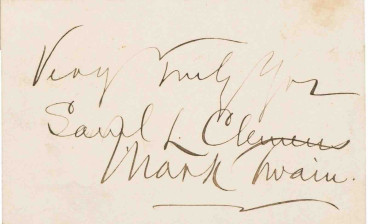 Very Truly Yrs
Saml L. Clemens
Mark Twain.